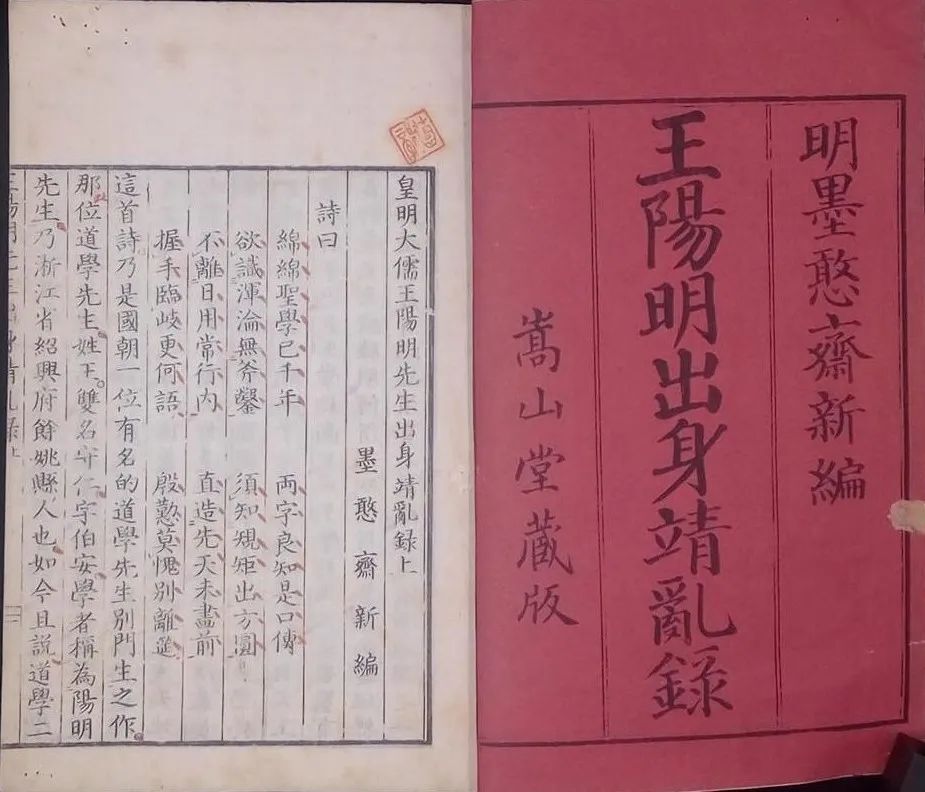 明墨憨齋新編
王陽明出身靖亂錄
嵩山堂藏版
皇明大儒王陽明先生出身靖亂錄上
墨憨齋新編
詩曰
綿綿聖學已千年 兩字良知是口傳
欲識渾淪無斧鑿 須知規矩出方圓
不離日用常行內 直造先天未畫前
握手臨岐更何語 殷懃莫愧別離筵
這首詩乃是國朝一位有名的道學先生別門生之作
那位道學先生姓王雙名守仁字伯安學者稱為陽明
先生乃淅江省紹興府餘姚縣人也如今且説道學二